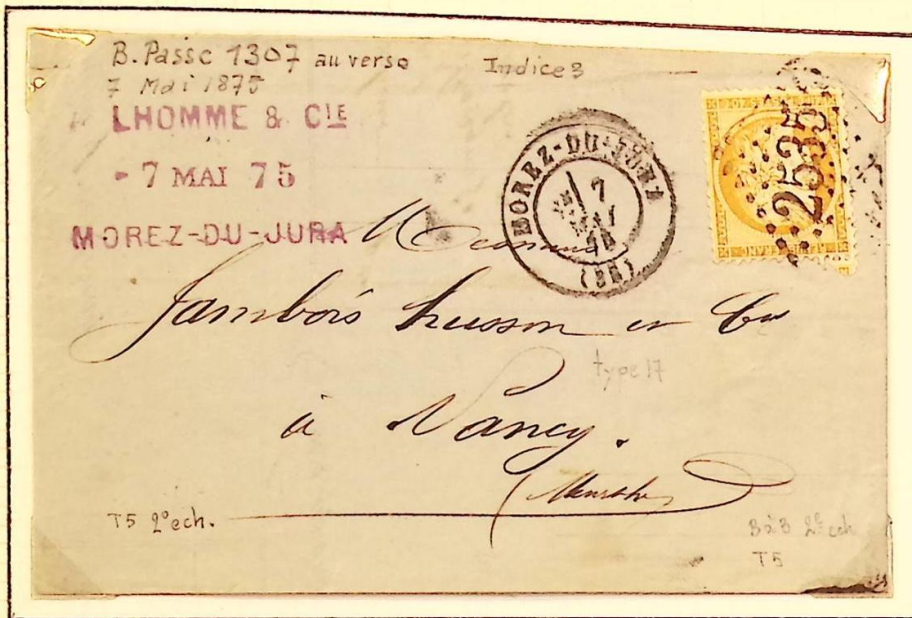 B. Passe 1307 au verso
Indice 3
7 Mai 1875
LHOMME & CIE
- 7 MAI 75
MOREZ-DU-JURA
MOREZ-DU-JURA
7
MAI
(38)
2535
Messieurs
Jambois husson et Cie
type 17
à Nancy.
(Meurthe)
T5 2°ech.
2e ech
T5